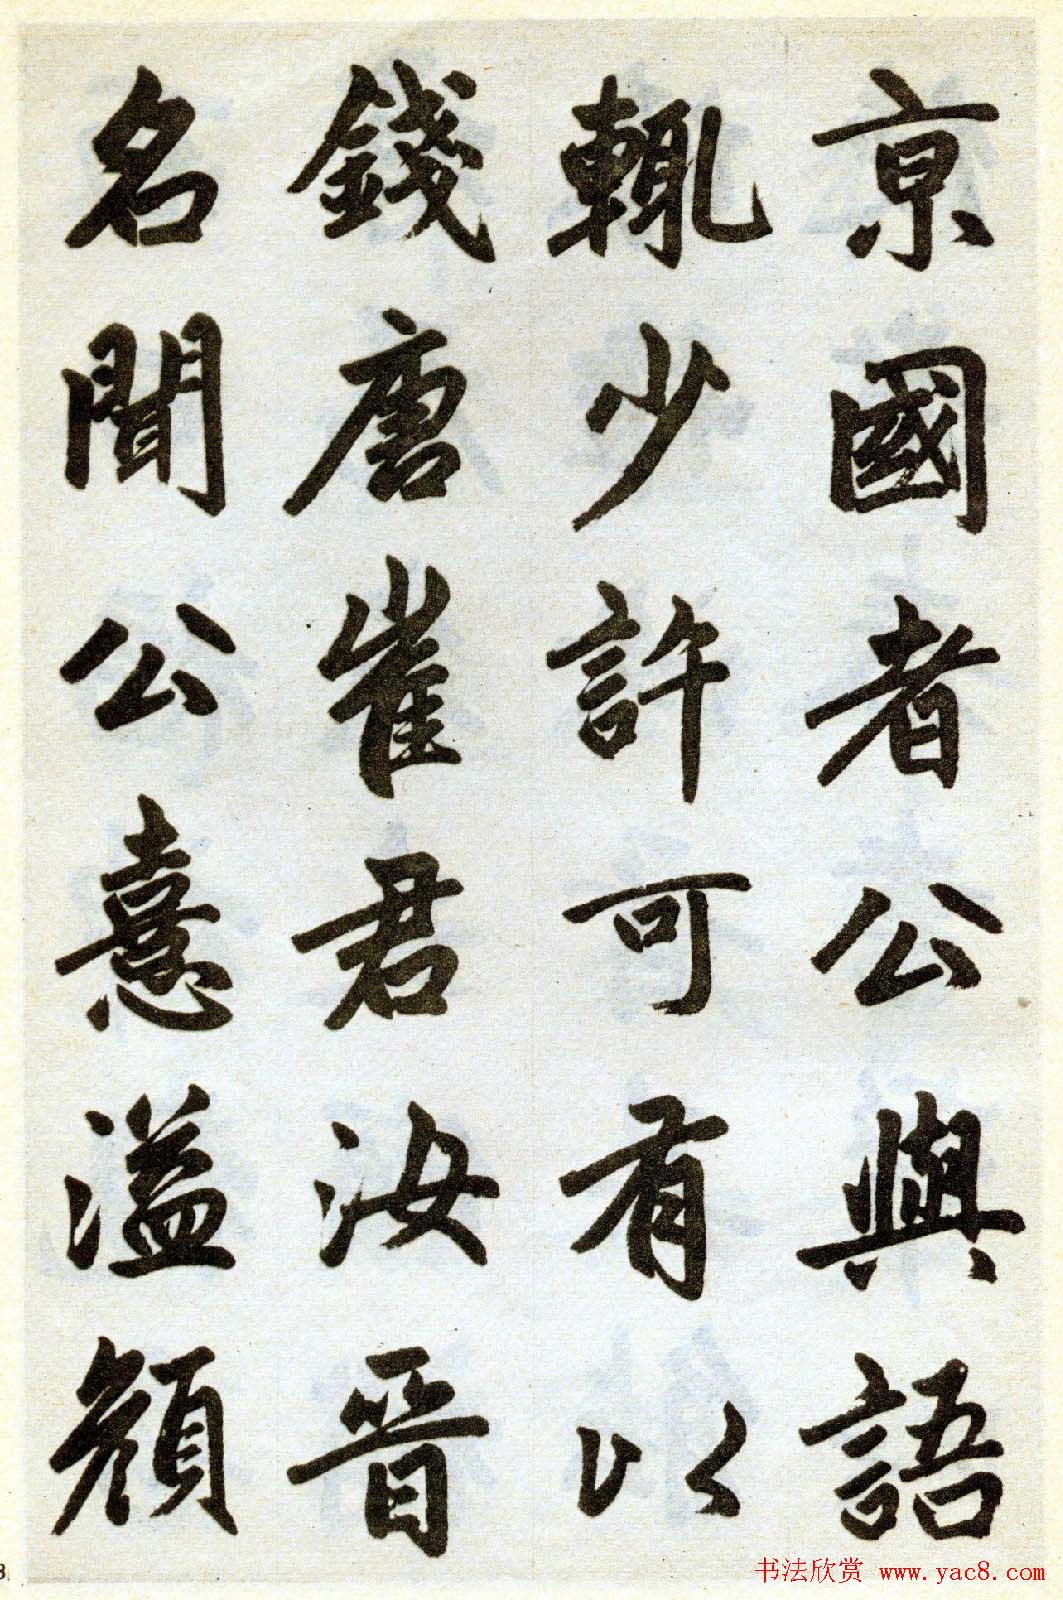 京國者公與語
輒少許可有以
錢唐崔君汝晉
名聞公憙溢顏
8
书法欣赏 www.yac8.com